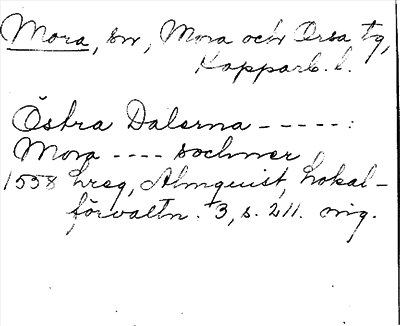 Mora, sn, Mora och Orsa tg,
Kopparb. l.
Östra Dalerna - - - - - :
Mora - - - - sochner
1558 hreg, Almquist, Lokal-
förvaltn. 3, s. 211. orig.